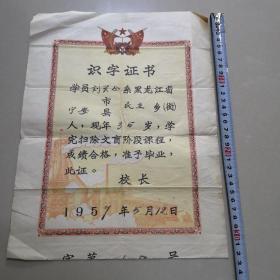 识字证书
学员刘 系黑龙江省
市
宁安县 民主 乡(街)
人，现年36岁，学
完扫除文盲阶段课程，
成绩合格，准予毕业，
此证。
校长
1957年5月12日
字第 号